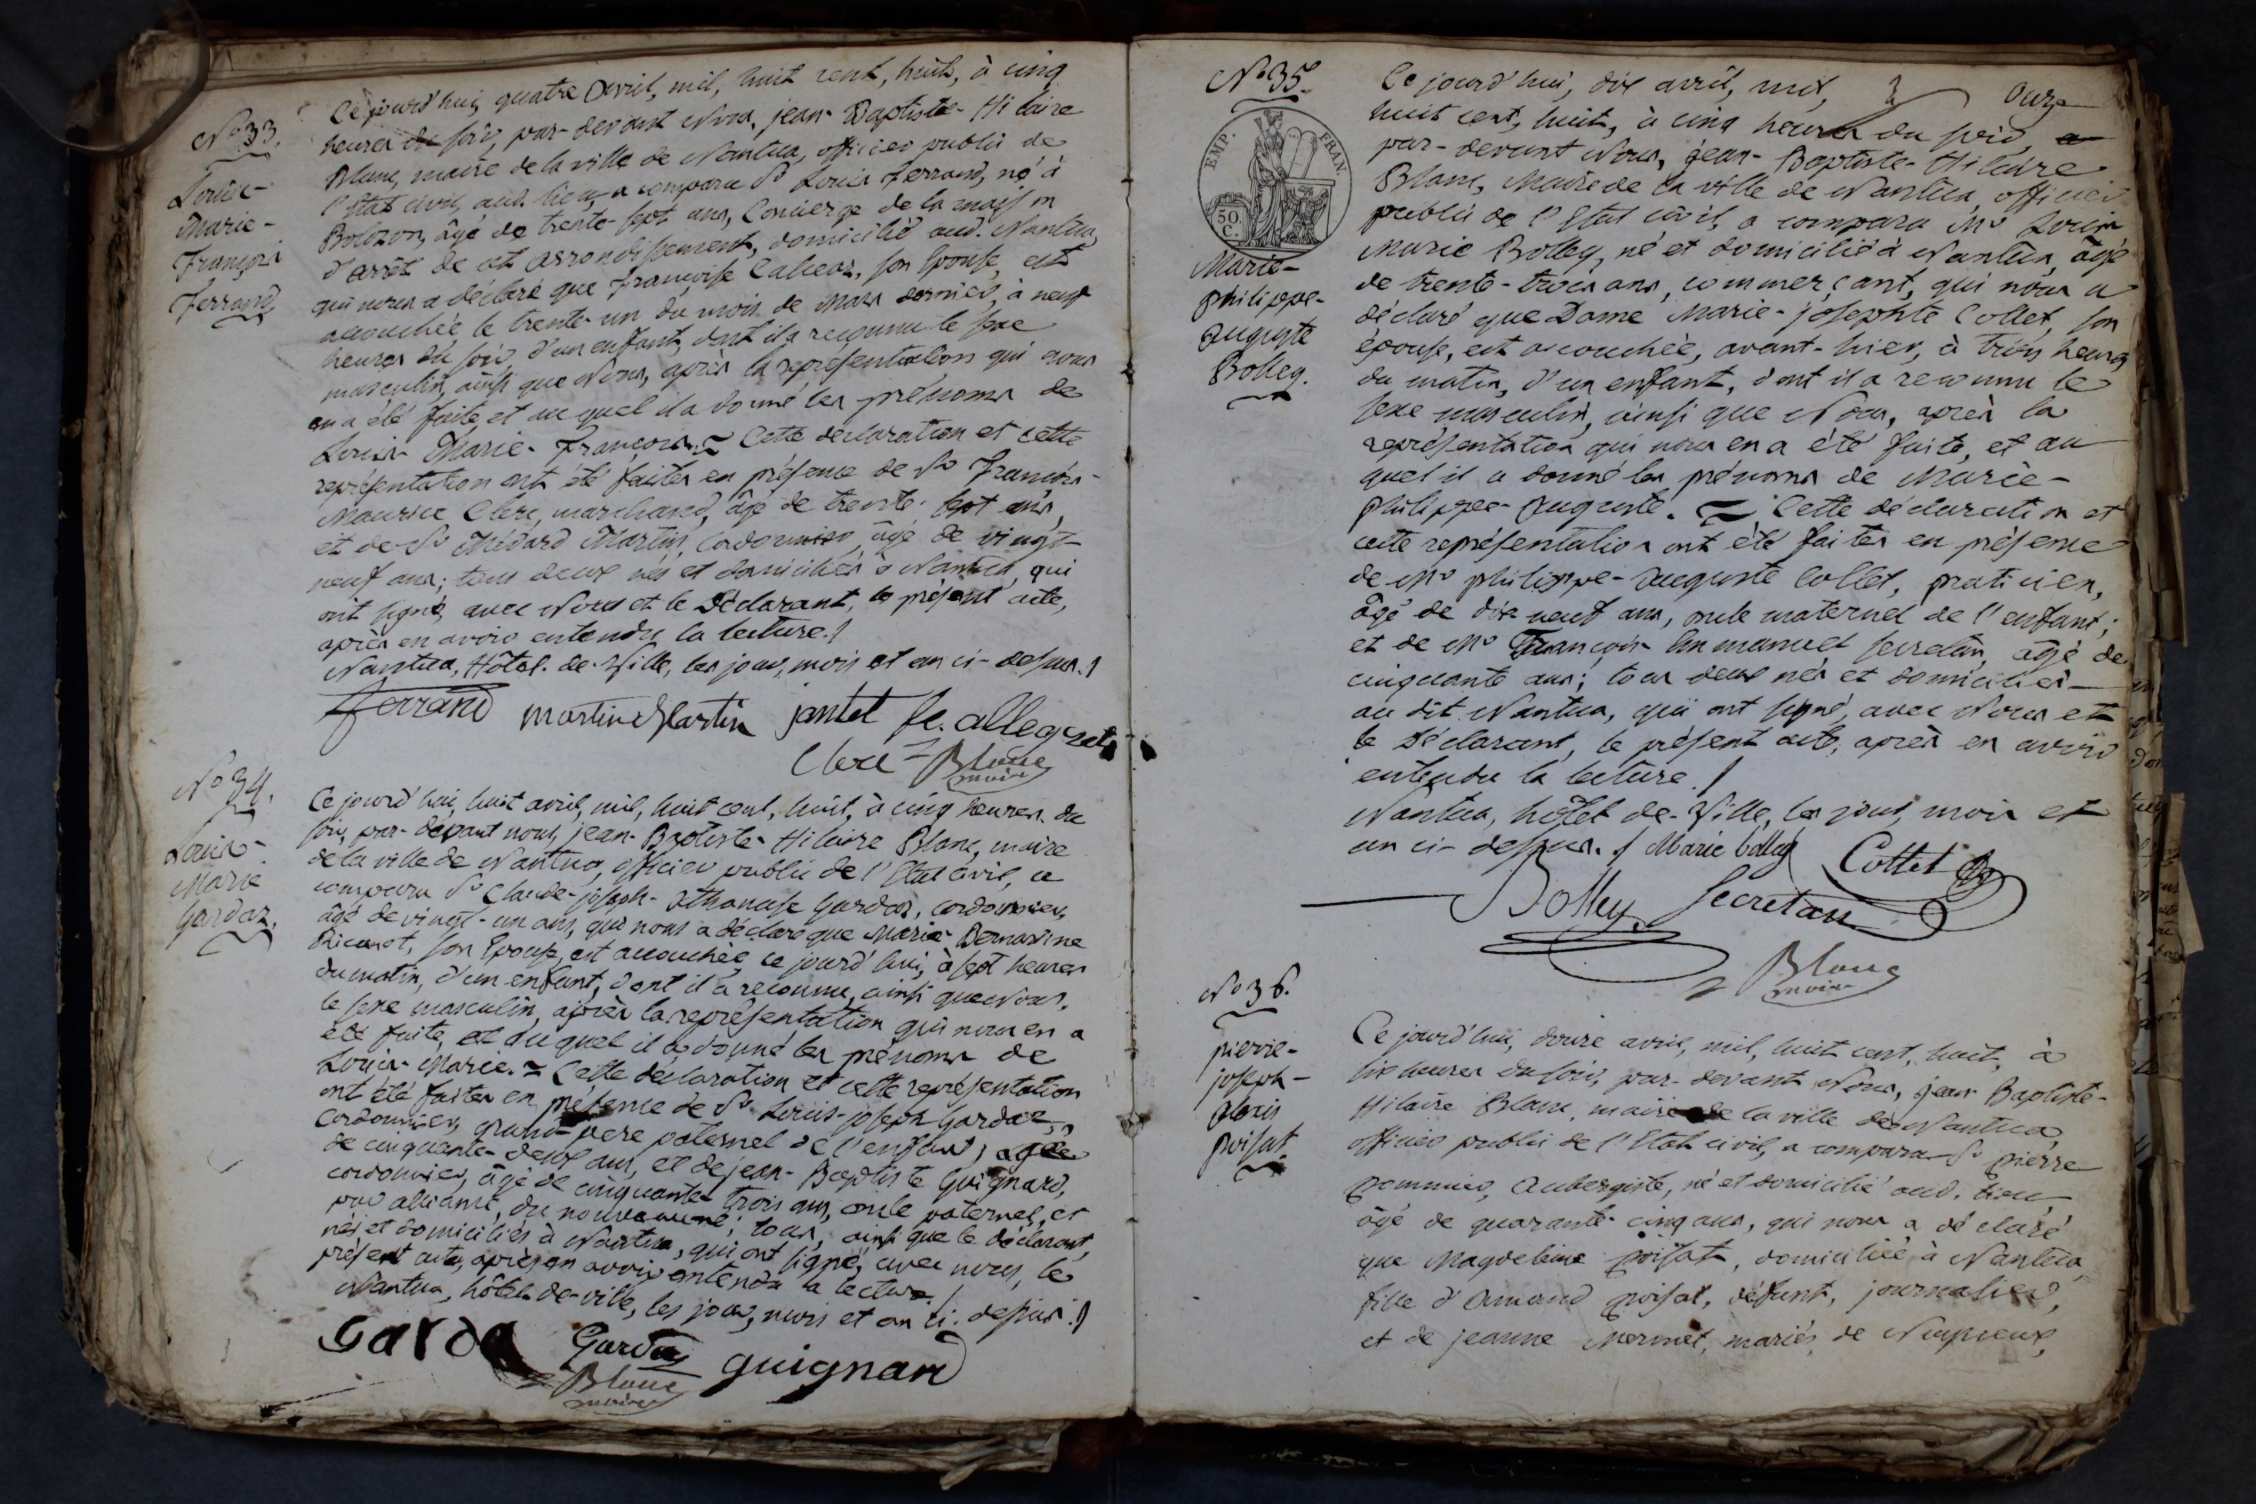 N.º 33.
Louis-
Marie-
François
Ferrand
Ce jourd'hui, quatre avril, mil, huit cent, huit, à cinq
heures du soir, par-devant Nous, jean-Baptiste-Hilaire
Blanc, maire de la ville de Nantua, officier public de
l'Etat civil, aud. lieu, a comparu Sr Louis Ferrand, né à
Bolozon, âgé de trente-sept ans, Concierge de la maison
d'arrêt de cet arrondissement, domicilié aud. Nantua,
qui nous a déclaré que françoise son Epouse, est
accouchée le trente-un du mois de Mars dernier, à neuf
heures du soir, d'un enfant, dont il a reconnu le sexe
masculin, ainsi que Nous, après la représentation qui nous
en a été faite, et au quel il a donné les prénoms de
Louis-Marie-François. ~ Cette déclaration et cette
représentation ont été faites en présence de Sr François-
Maurice Clerc, marchand, âgé de trente-sept ans,
et de Sr Médard Martin, Cordonnier, âgé de vingt-
neuf ans; tous deux nés et domiciliés à Nantua, qui
ont signé, avec Nous et le Déclarant, le présent acte,
après en avoir entendu la lecture./
Nantua, Hôtel-de-Ville, les jour, mois et an ci-dessus./
Ferrand martin Martin jantet
Clerc Blanc
maire
N.º 34.
Louis-
Marie
Gardaz.
Ce jourd'hui, huit avril, mil, huit cent, huit, à cinq heures du
soir, par-devant nous, jean-Baptiste-Hilaire Blanc, maire
de la ville de Nantua, officier public de l'Etat civil, a
comparu Sr Claude-joseph-Athanase Gardaz, cordonnier,
âgé de vingt-un ans, qui nous a déclaré que Marie-Bernardine
son Epouse, est accouchée, ce jourd'hui, à sept heures
du matin, d'un enfant, dont il a reconnu, ainsi que Nous,
le sexe masculin, après la représentation qui nous en a
été faite, et auquel il a donné les prénoms de
Louis-Marie. ~ Cette déclaration et cette représentation
ont été faites en présence de Sr Louis-joseph Gardaz,
cordonnier, grand-père paternel de l'enfant, âgé
de cinquante-deux ans, et de jean-Baptiste Guignard,
cordonnier, âgé de cinquante-trois ans, oncle paternel, et
par alliance, du nouveau né; tous, ainsi que le déclarant,
nés et domiciliés à Nantua, qui ont signé, avec nous, le
présent acte, après en avoir entendu la lecture./
Nantua, hôtel-de-ville, les jour, mois et an ci-dessus./
Garda Gardaz guignard
Blanc
maire
N.º 35.
EMP. FRAN.
50.
C.
Marie-
philippe-
auguste
Bolley.
onze
Ce jourd'hui, dix avril, mil,
huit cent, huit, à cinq heures du soir,
par-devant Nous, jean-Baptiste-Hilaire
Blanc, Maire de la ville de Nantua, officier
public de l'Etat civil, a comparu Mr Louis
Marie Bolley, né et domicilié à Nantua, âgé
de trente-trois ans, commerçant, qui nous a
déclaré que Dame Marie-josephte Collet, son
épouse, est accouchée, avant-hier, à trois heures
du matin, d'un enfant, dont il a reconnu le
sexe masculin, ainsi que Nous, après la
représentation qui nous en a été faite, et au
quel il a donné les prénoms de Marie-
philippe-auguste. ~ Cette déclaration et
cette représentation ont été faites en présence
de Mr philippe-auguste Collet, praticien,
âgé de dix neuf ans, oncle maternel de l'enfant;
et de Mr François-Emmanuel Secretan, âgé de
cinquante ans; tous deux nés et domiciliés
au dit Nantua, qui ont signé, avec Nous et
le Déclarant, le présent acte, après en avoir
entendu la lecture./
Nantua, hôtel-de-Ville, les jour, mois et
an ci-dessus./ Marie Colley Collet
Bolley Secretan
Blanc
maire
N.º 36.
pierre-
joseph-
poisat.
Ce jourd'hui, douze avril, mil, huit cent, huit, à
six heures du soir, par-devant Nous, jean Baptiste-
Hilaire Blanc, maire de la ville de Nantua,
officier public de l'Etat civil, a comparu Sr pierre
pommier, Aubergiste, né et domicilié aud. lieu,
âgé de quarante-cinq ans, qui nous a déclaré
que Magdeleine poisat, domiciliée à Nantua,
fille d'Amand poisat, défunt, journalier,
et de jeanne Mermet, mariés, de Neyrieux,